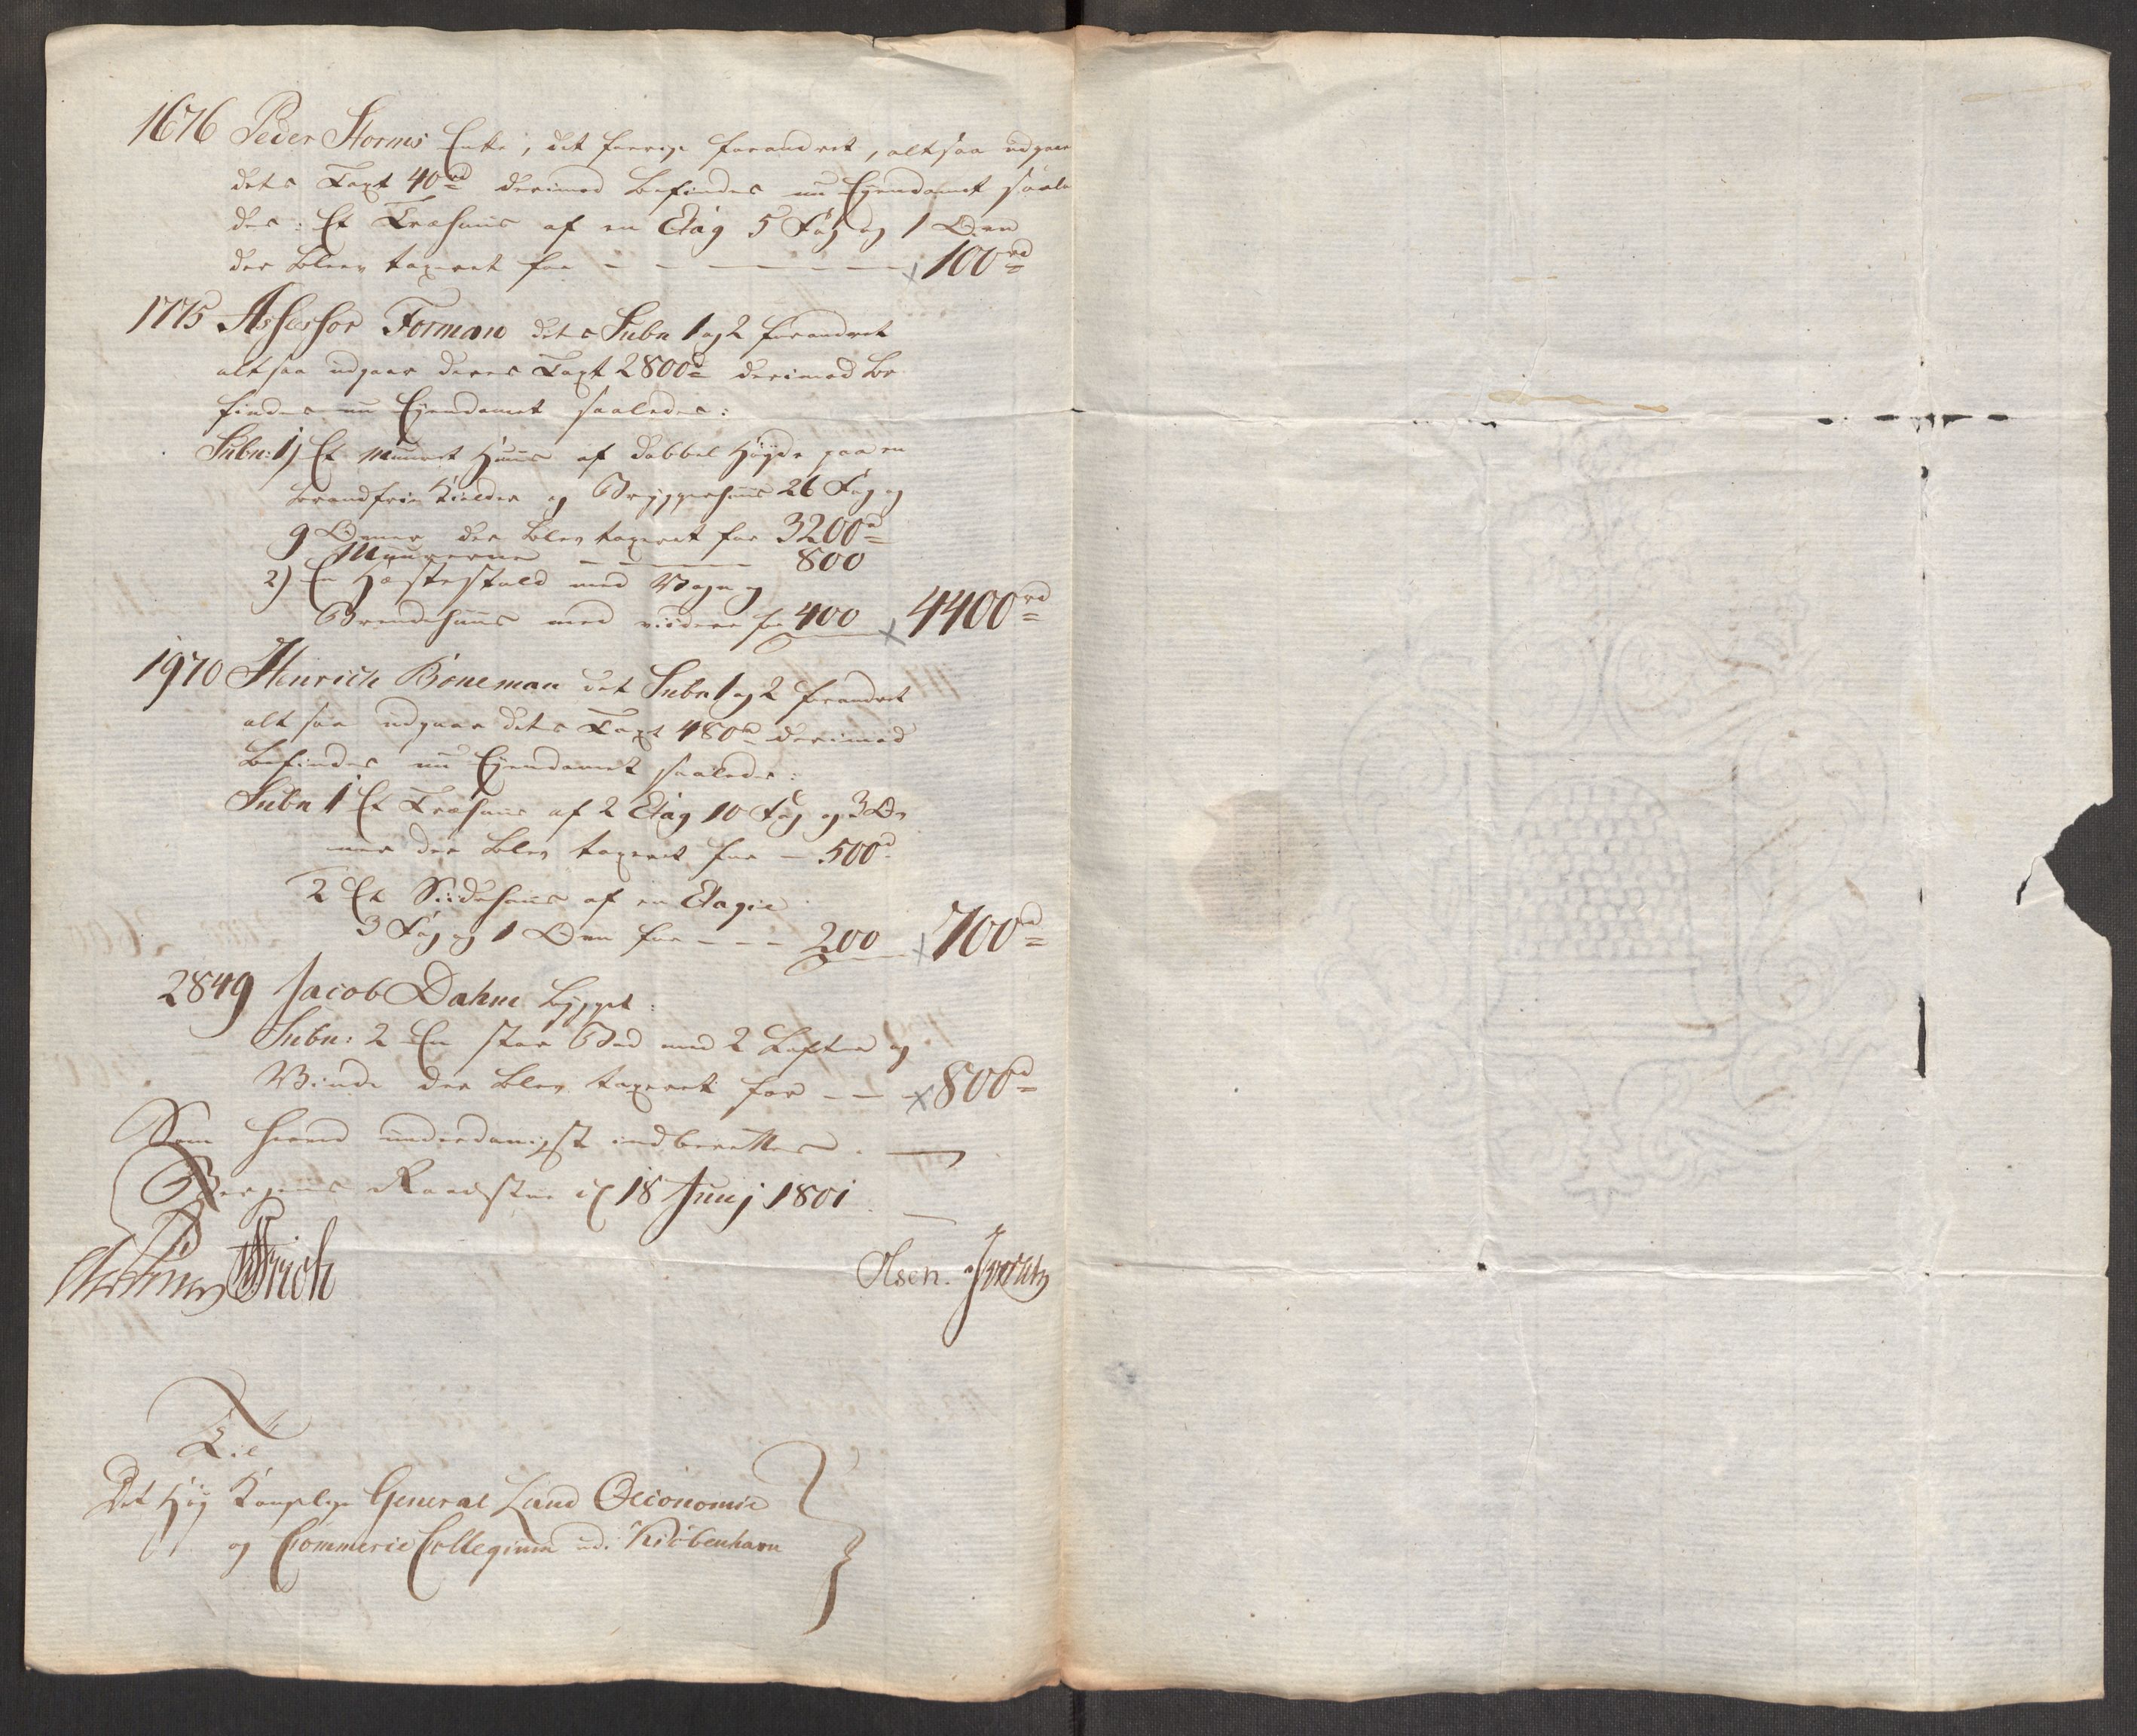 1676 Peder Storms Enke, det forrige forandret, altsaa udgaar
dets Taxt 40 rd derimod befindes nu Ejendomet saale
des: Et Træhuus af en Etag 5 Fag og 1 Oven
der blev taxeret for - - - - - - 100 rd
1775 Assessor Forman dets Subn 1 og 2 forandret
altsaa udgaar deres Taxt 2800 d derimod be
findes nu Ejendomet saaledes:
Subn: 1) Et Muuret Huus af dobbel Høyde paa en
brandfrie Kielder og Bryggerhuus 26 Fag og
9 Ovner der blev taxeret for 3200 d
Muurerne - - - - - 800
2) En Hæstestald med Vogn og
Brendehuus med viidere for 400 4400 rd
1970 Henrich Boneman det Subn 1 og 2 forandret
alt saa udgaar dets Taxt 480 d derimod
befindes nu Ejendomet saaledes:
Subn 1 Et Træhuus af 2 Etag 10 Fag og 3 Ov
ner der blev taxeret for - 500 d
2 Et Siidehuus af en Etagie
3 Fag og 1 Oven for - - - 200 700 d
2849 Jacob Dahm bygget:
Subn: 2 En stor Bod med 2 Lofter og
Vinde der blev taxeret for - - - 800 d
Som herved underdanigst indberettes.
Bergens Raadstue d 18 Junij 1801.
Olsen.
Til
Det Høy Kongelige General Land Oeconomie
og Commerce Collegium udi Kiöbenhavn